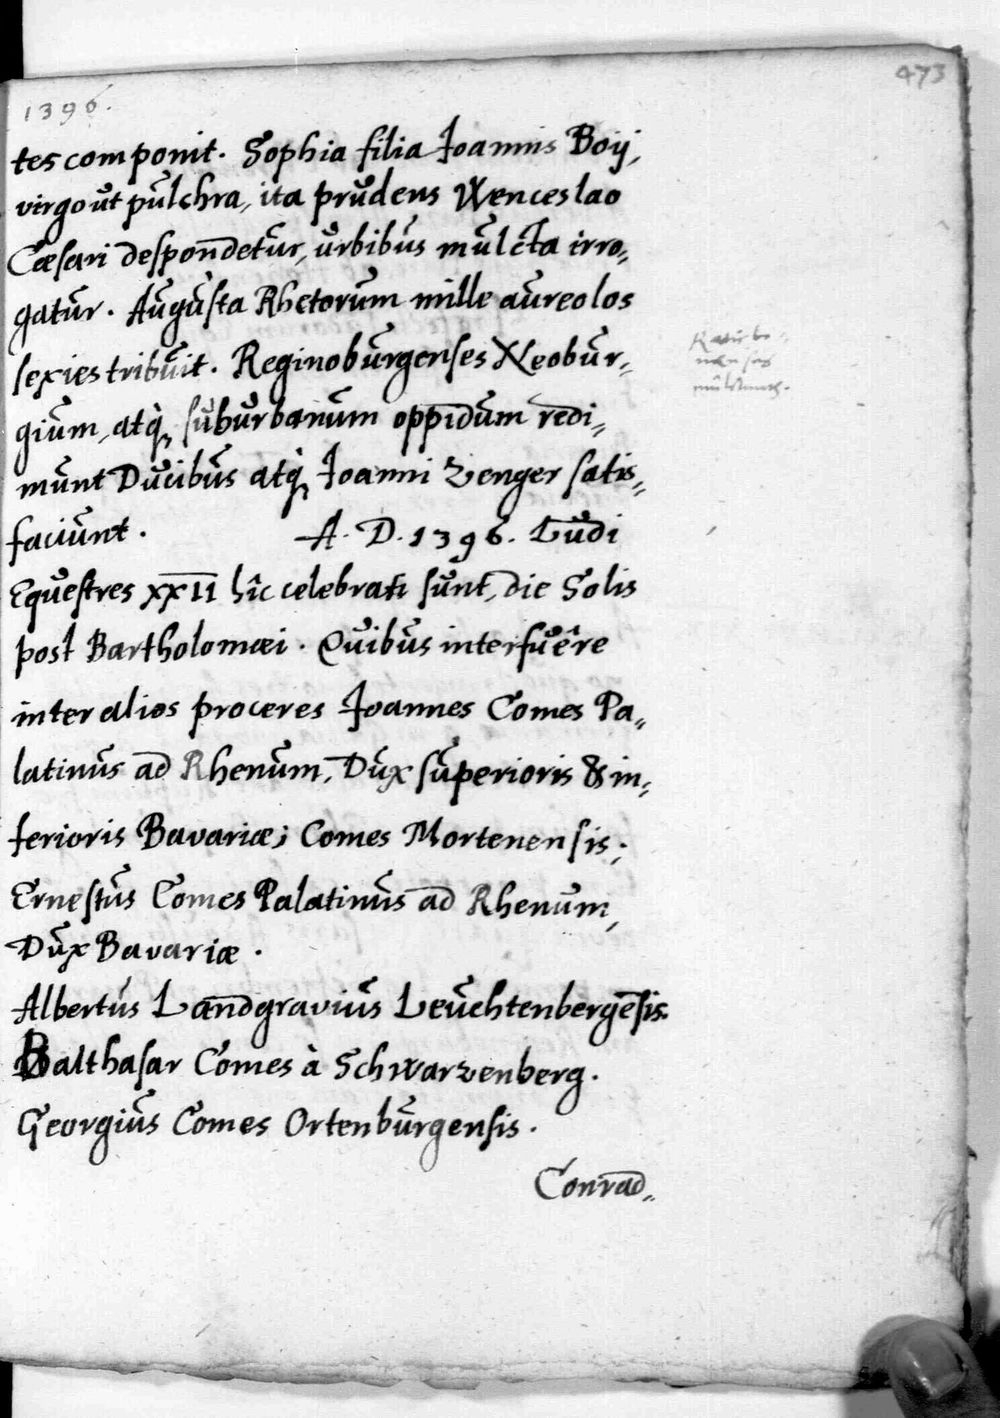 473
1396.
tes componit. Sophia filia Joannis Boij,
virgo ut pulchra, ita prudens Wenceslao
Cæsari despondetur, urbibus mulcta irro„
gatur. Augusta Rhetorum mille aureolos
sexies tribuit. Reginoburgenses Neobur„
gium, atq, suburbanum oppidum redi„
munt Ducibus atq, Joanni Zenger satis„
faciunt. A. D. 1396. Ludi
Equestres XXII hîc celebrati sunt, die Solis
post Bartholomæi. Quibus interfuêre
inter alios proceres Joannes Comes Pa„
latinus ad Rhenum, Dux superioris & in„
ferioris Bavariæ; Comes Mortenensis;
Ernestus Comes Palatinus ad Rhenum,
Dux Bavariæ.
Albertus Landgravius Leuchtenbergēsis.
Balthasar Comes à Schwarzenberg.
Georgius Comes Ortenburgensis.
Conrad„